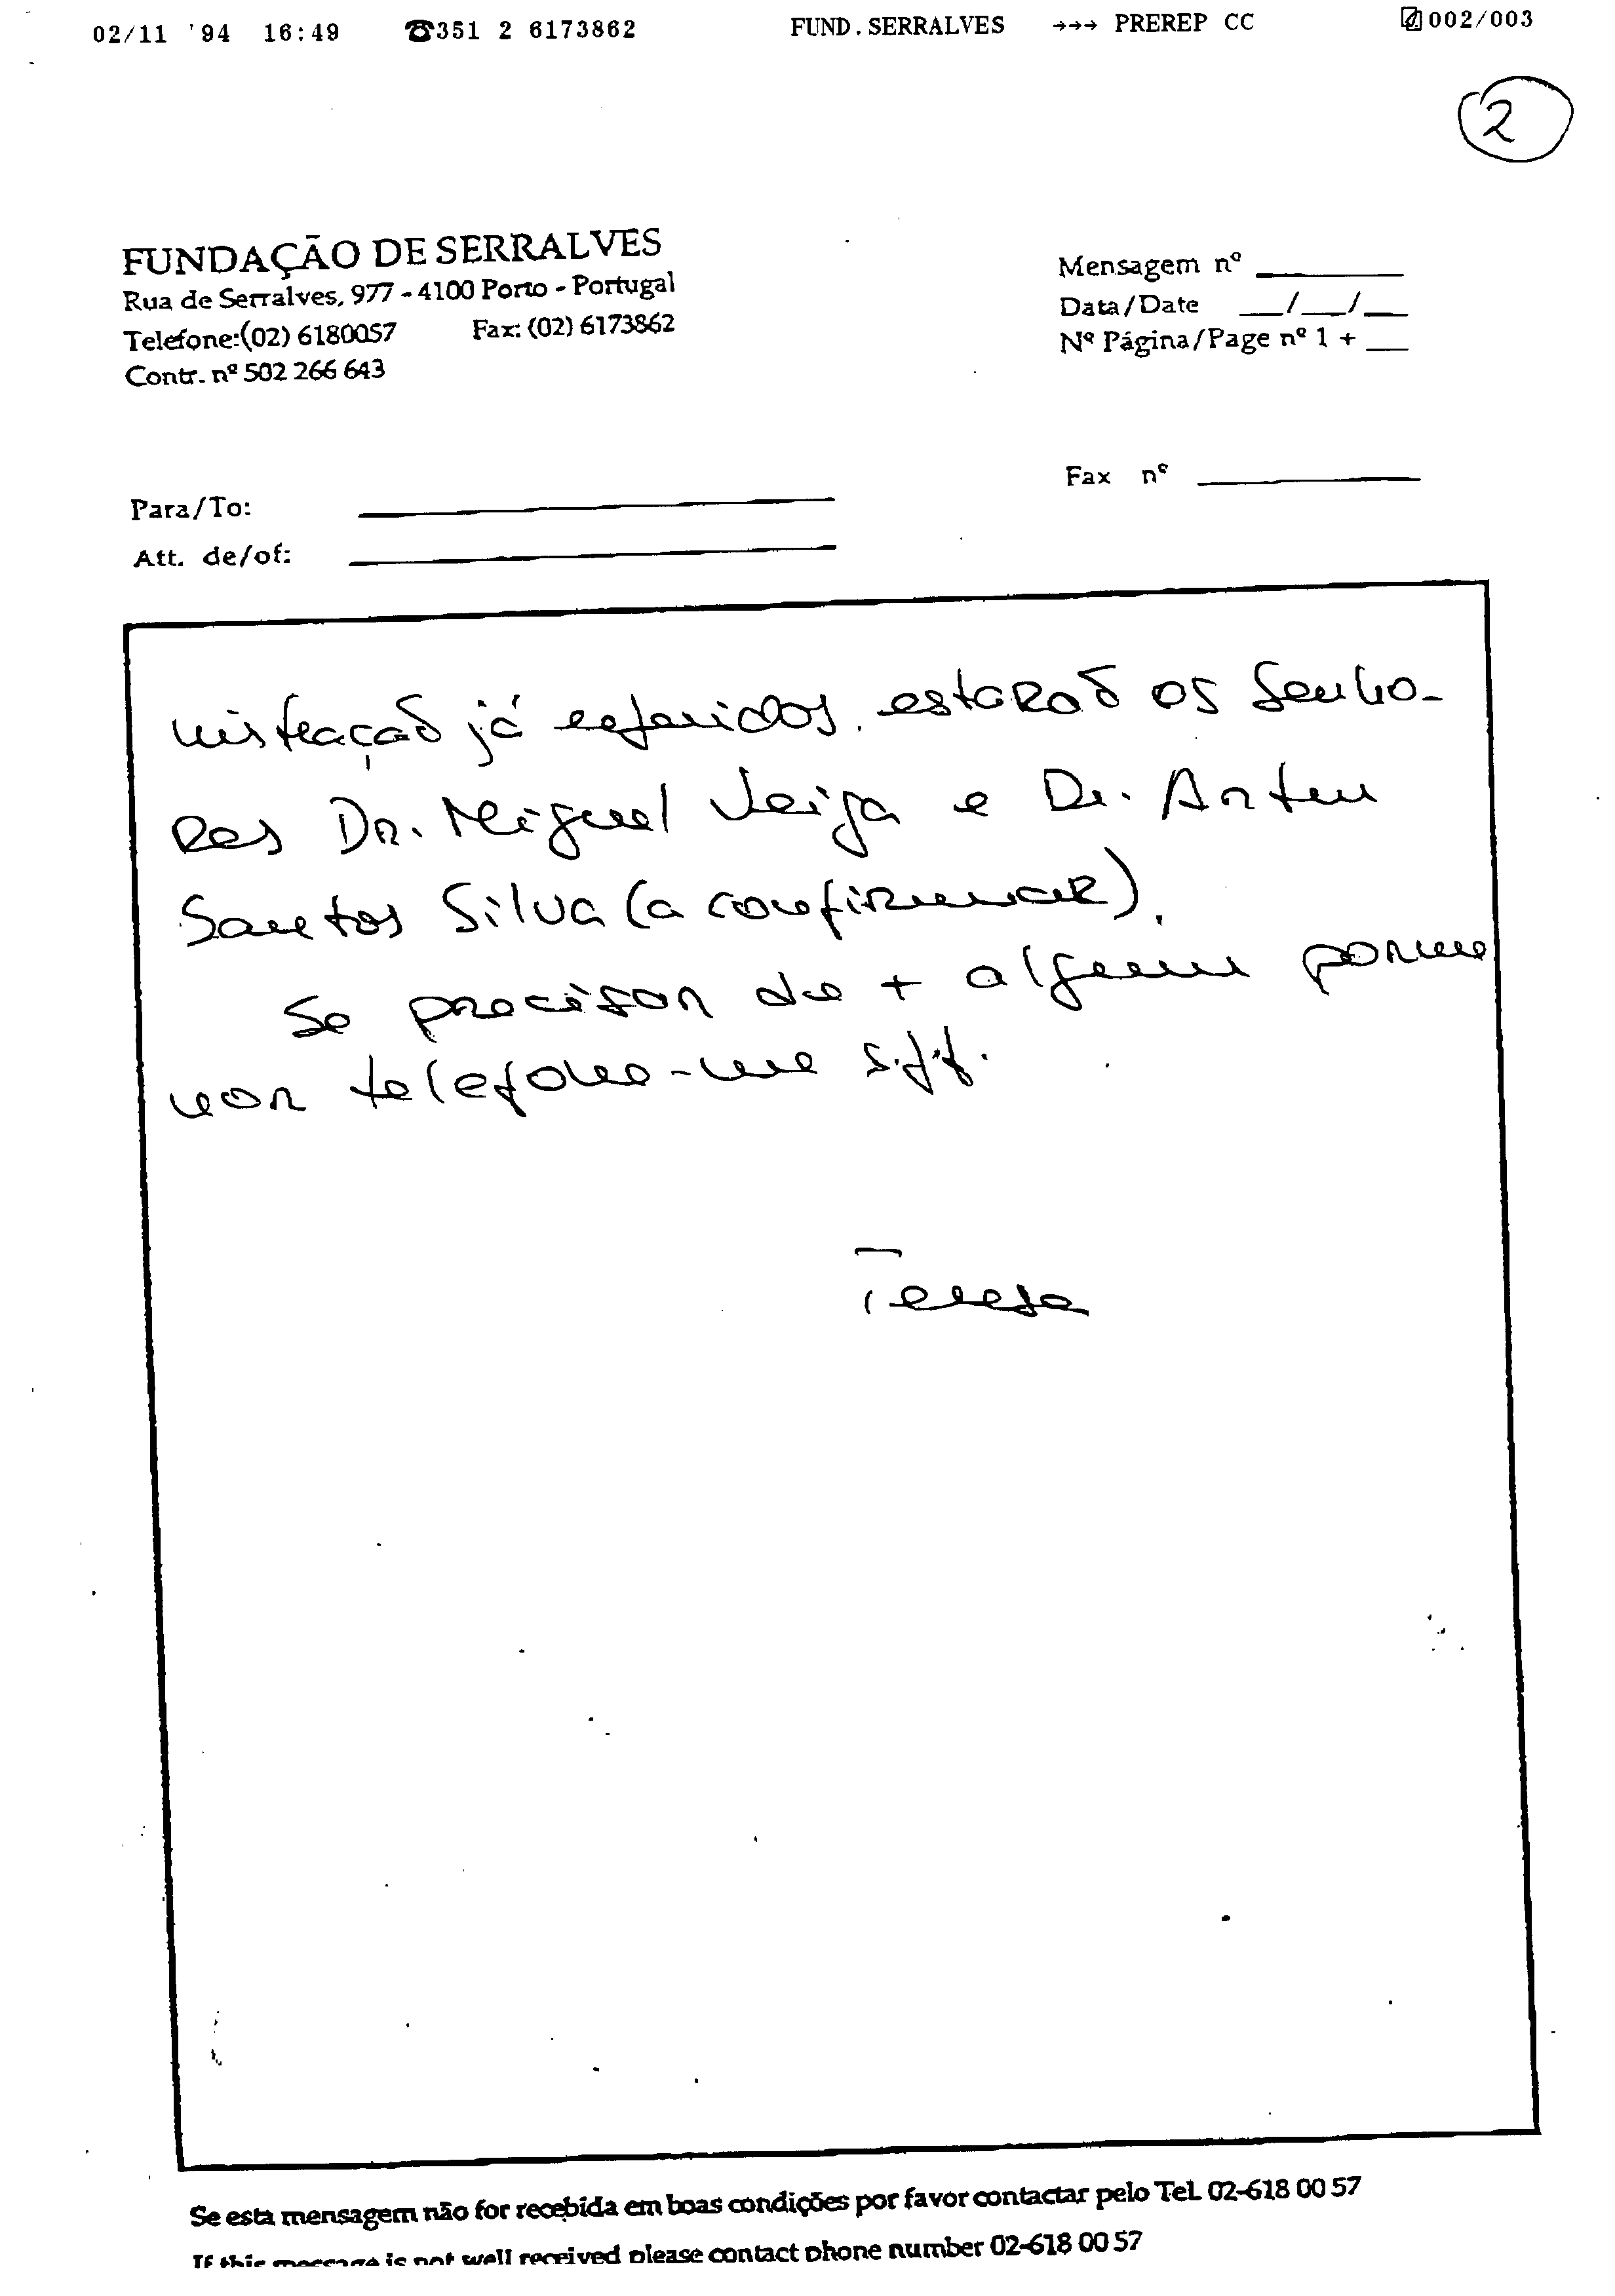 02/11 '94 16:49 ☎351 2 6173862 FUND.SERRALVES →→→ PREREP CC 002/003
2
FUNDAÇÃO DE SERRALVES
Rua de Serralves, 977 - 4100 Porto - Portugal
Telefone:(02) 6180057 Fax: (02) 6173862
Contr. nº 502 266 643
Mensagem nº
Data/Date __/__/__
Nº Página/Page nº 1 + __
Fax nº
Para/To:
Att. de/of:
nistração já referidos, estarão os Senho-
res Dr. Miguel Veiga e Dr. Artur
Santos Silva (a confirmar).
Se precisar de + algum porme
nor telefone-me s.f.f.
Teresa
Se esta mensagem não for recebida em boas condições por favor contactar pelo Tel. 02-618 00 57
If this message is not well received please contact phone number 02-618 00 57